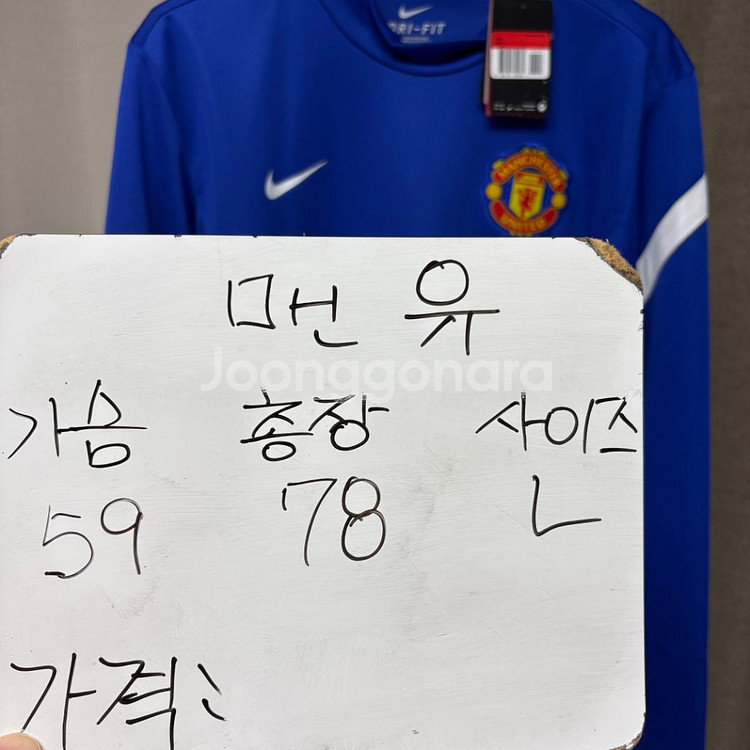 DRI-FIT
MANCHESTER
UNITED
맨 유
Joonggonara
가슴 총장 사이즈
59 78 L
가격: